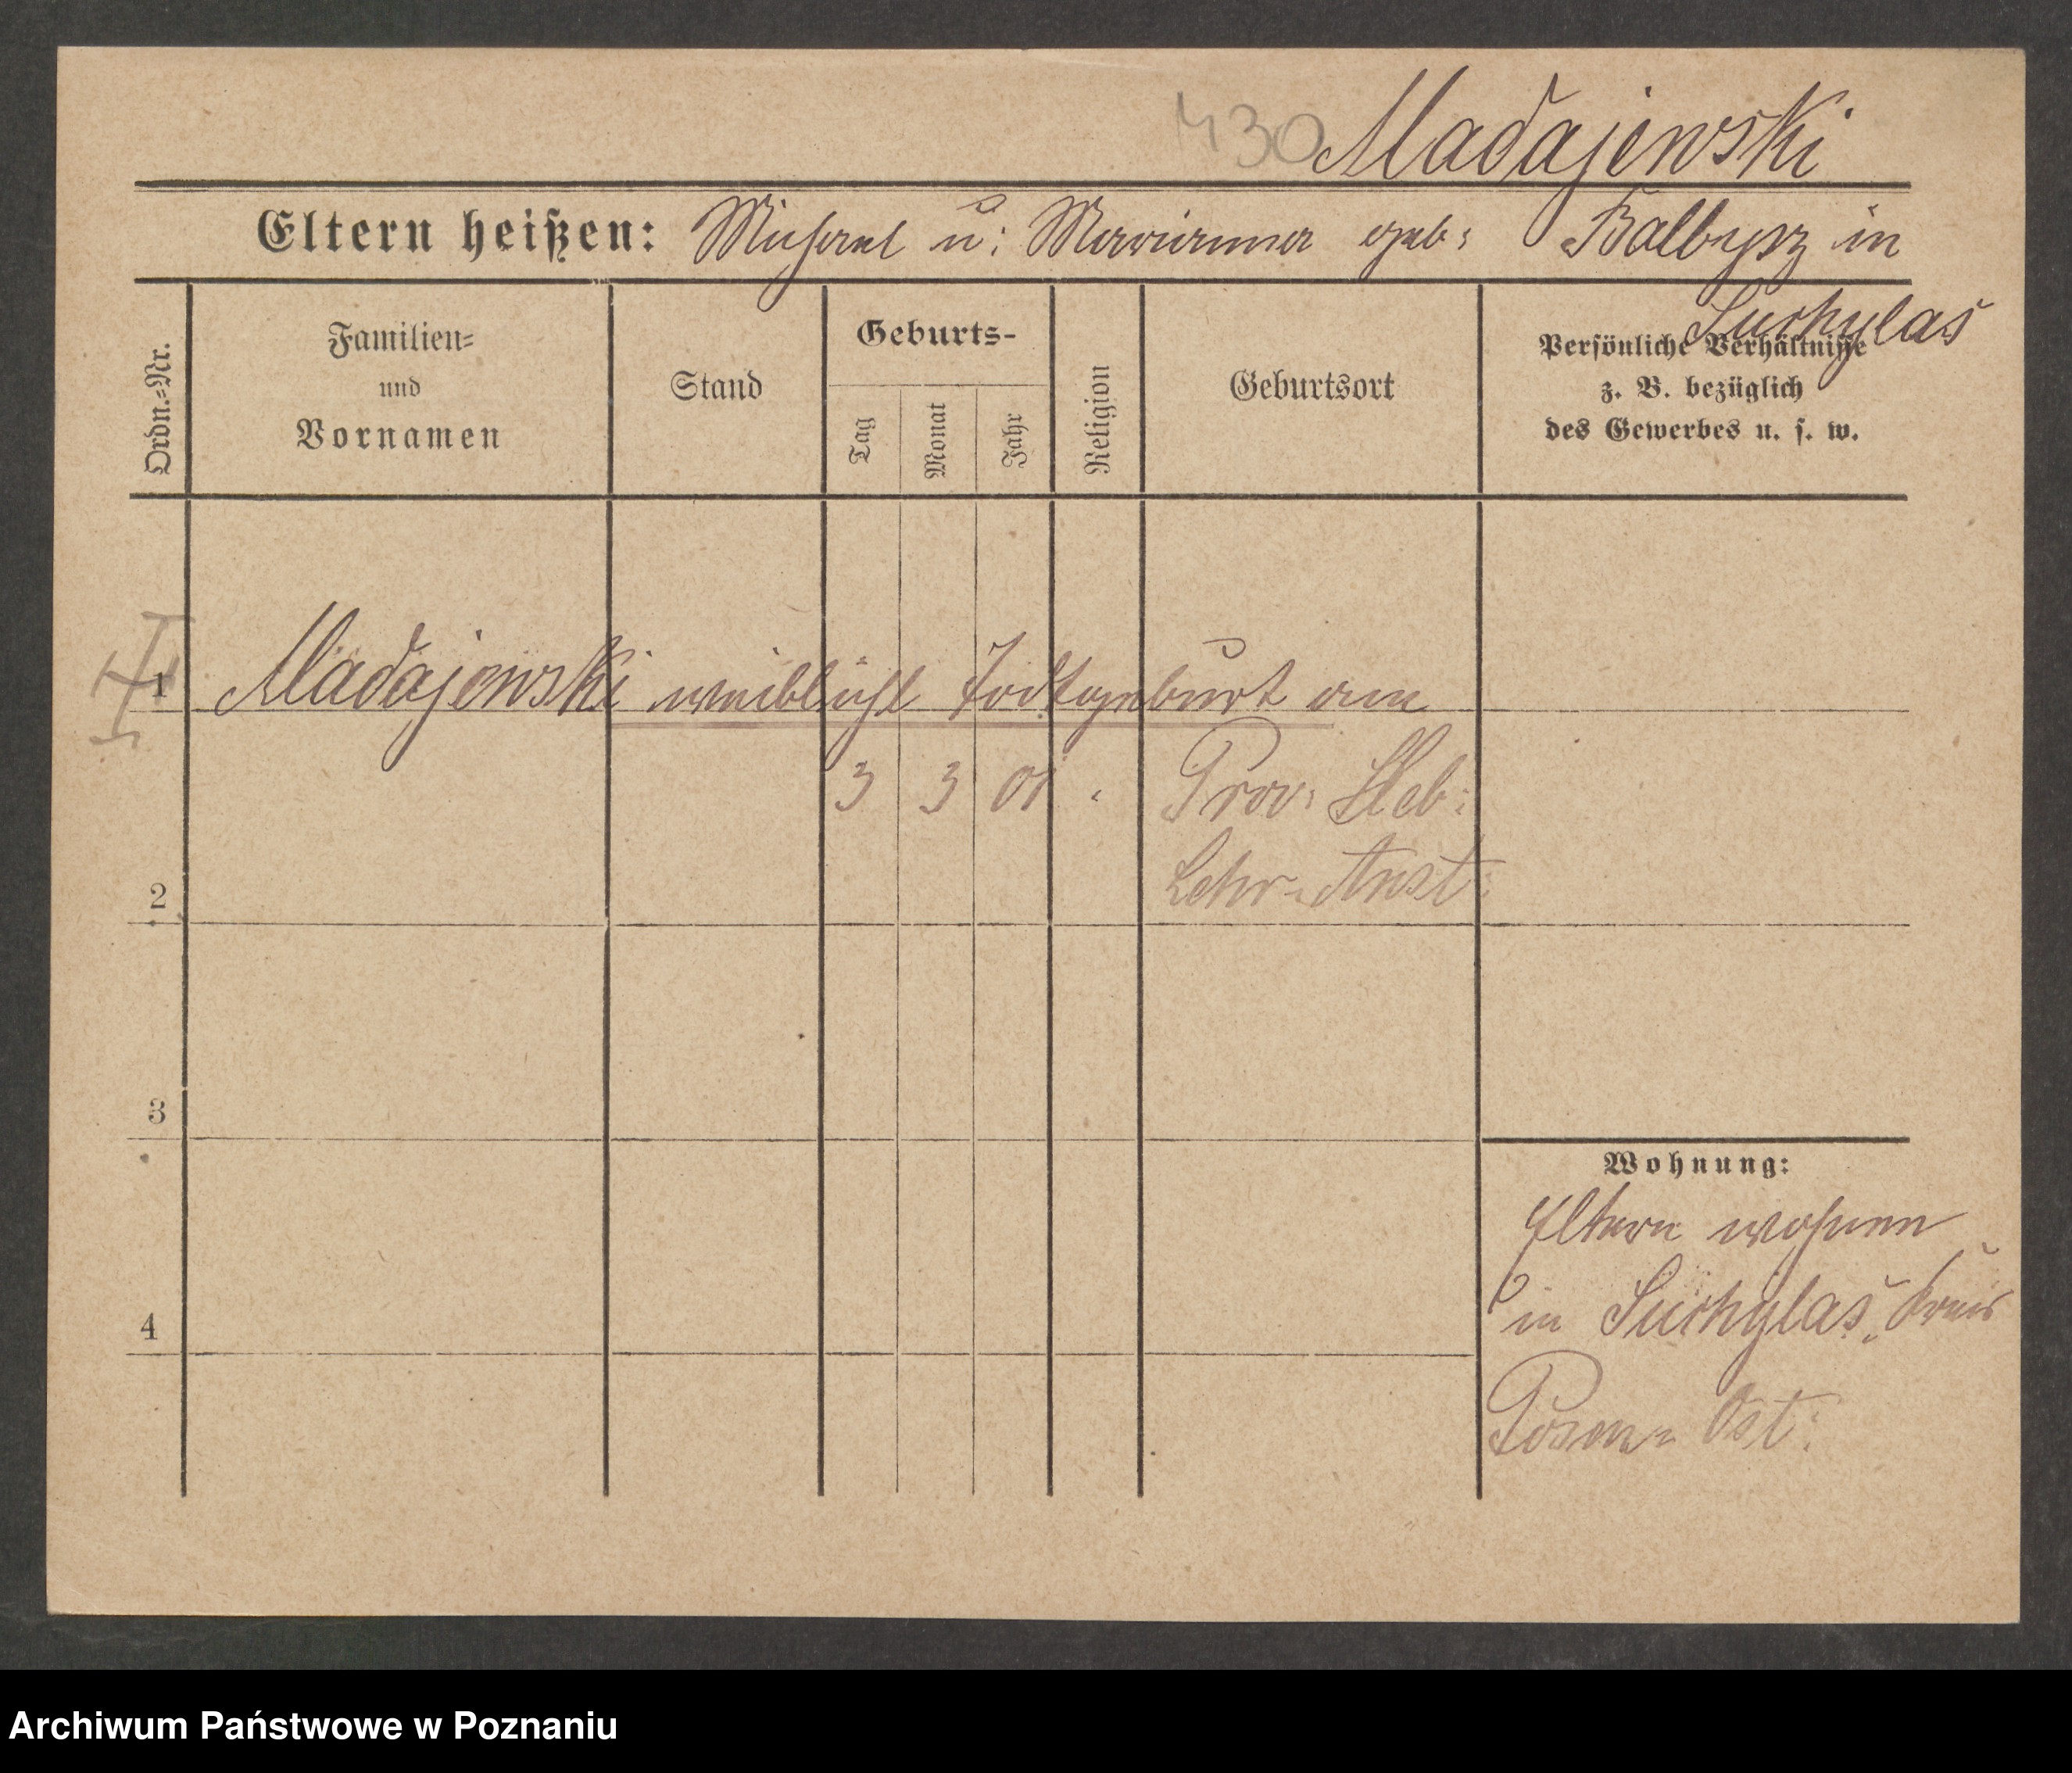 430 Madajewski
Eltern heißen: Michael u: Marianna geb: Balbysz in
Suchylas
Ordn.=Nr.
Familien=
und
Vornamen
Stand
Geburts-
Tag
Monat
Jahr
Religion
Geburtsort
Persönliche Verhältnisse
z. B. bezüglich
des Gewerbes u. s. w.
1 Madajewski weibliche Todtgeburt am
3 3 01 Prov: Heb:
2 Lehr=Anst:
3
Wohnung:
Eltern wohnen
4 in Suchylas, Kreis
Posen=Ost:
Archiwum Państwowe w Poznaniu